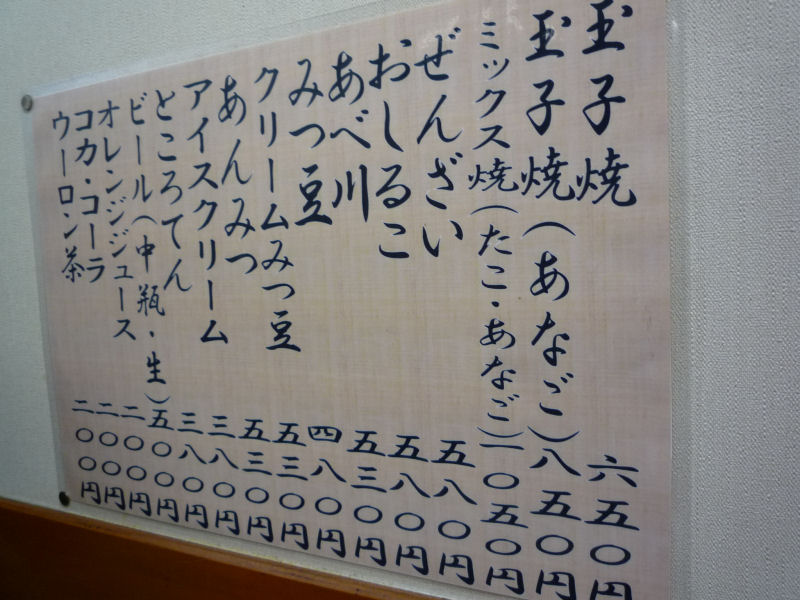 玉子焼 六五〇円
玉子焼(あなご) 八五〇円
ミックス焼(たこ・あなご) 一〇五〇円
ぜんざい 五八〇円
おしるこ 五八〇円
あべ川 五三〇円
みつ豆 四八〇円
クリームみつ豆 五三〇円
あんみつ 五三〇円
アイスクリーム 三八〇円
ところてん 三八〇円
ビール(中瓶・生) 五〇〇円
オレンジジュース 二〇〇円
コカ・コーラ 二〇〇円
ウーロン茶 二〇〇円